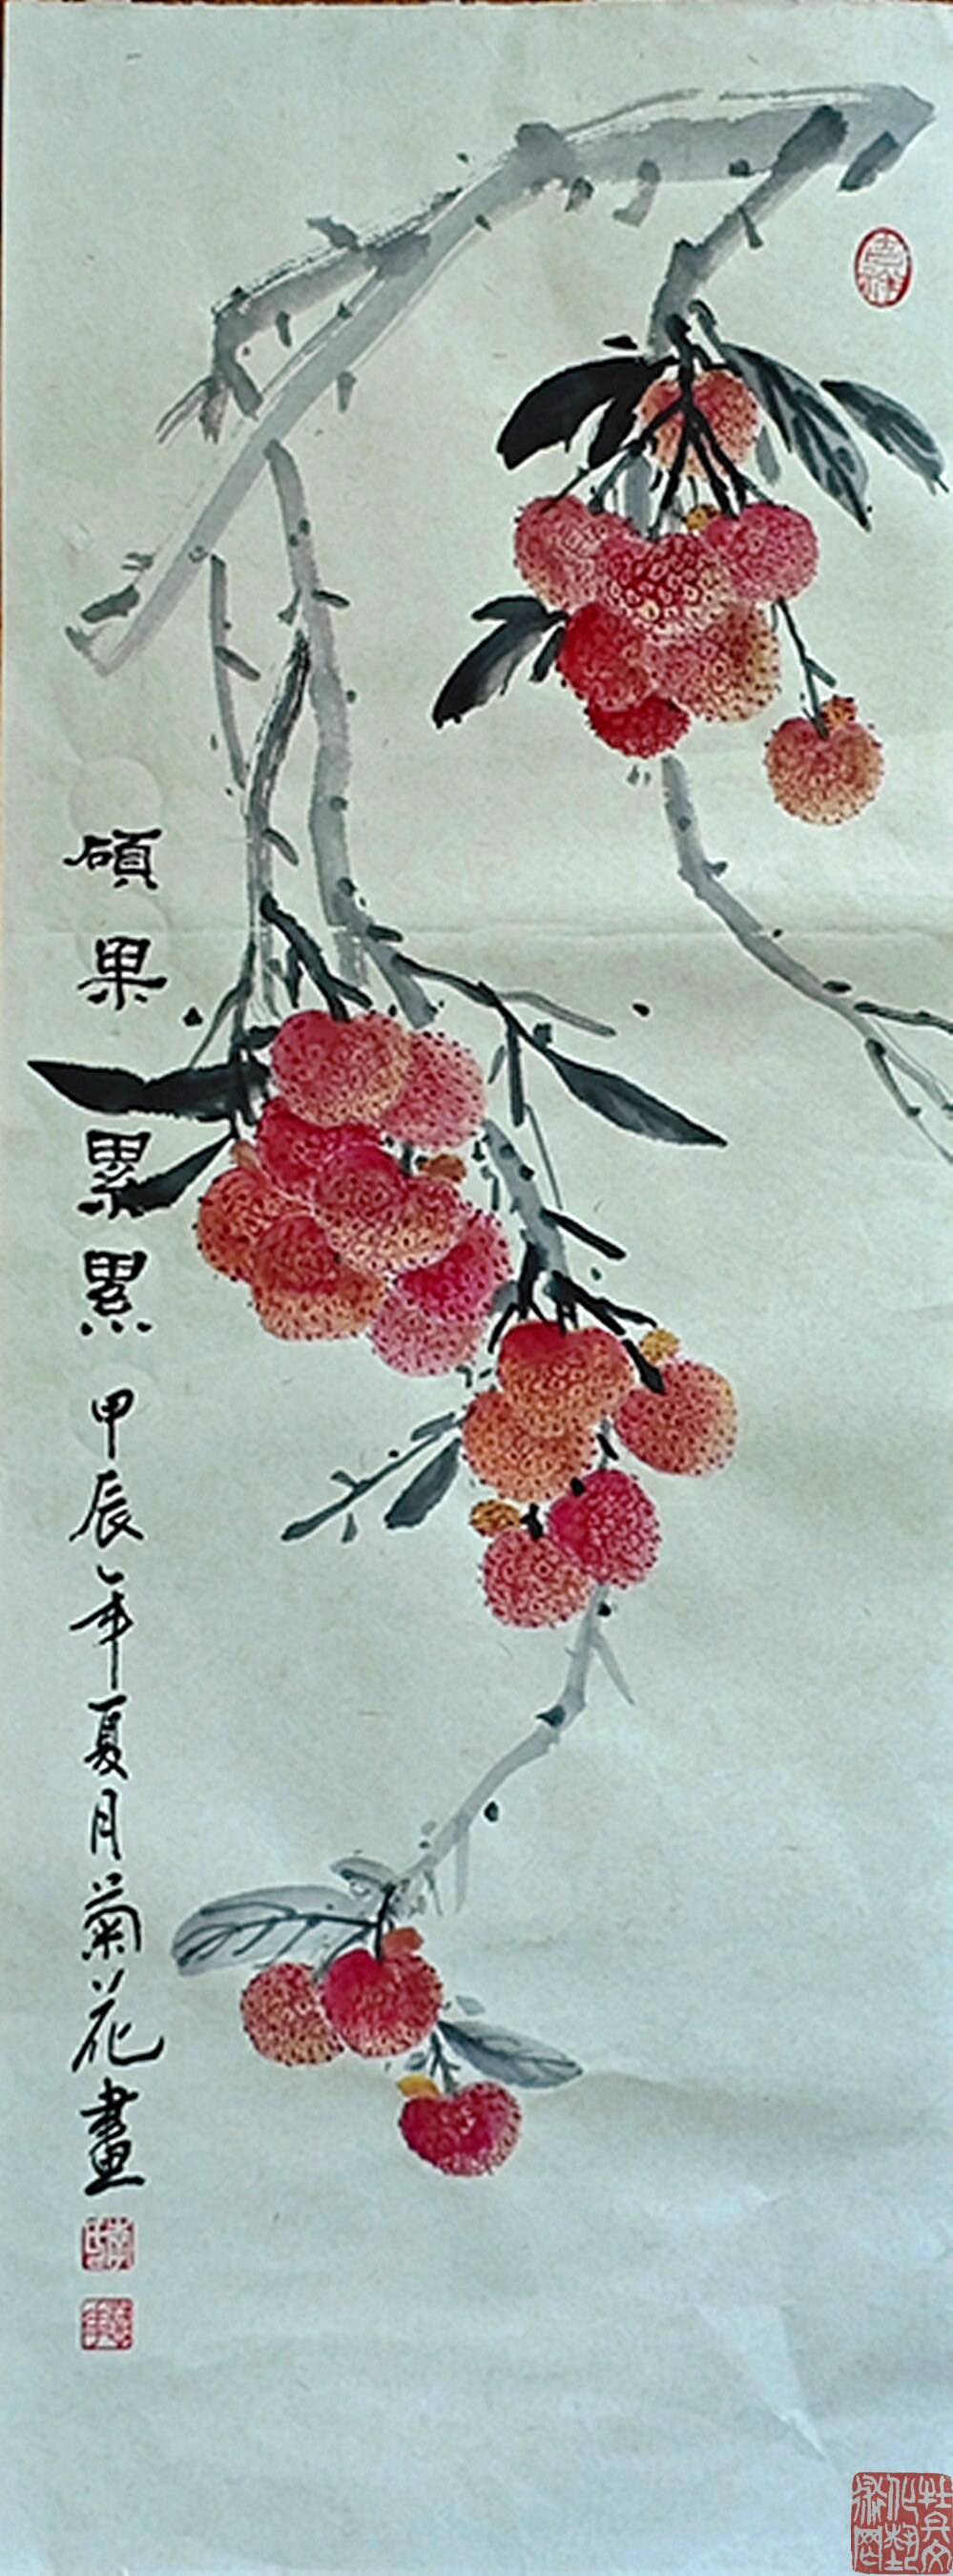 碩果累累 甲辰年夏月菊花畫